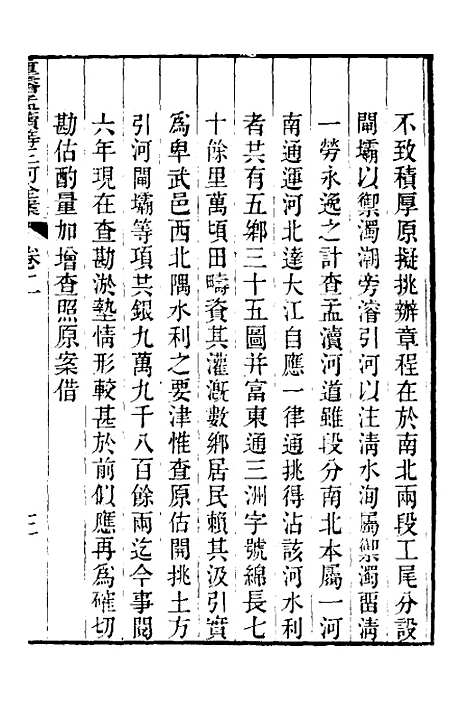 不致積厚原擬挑辦章程在於南北兩段工尾分設
閘壩以禦濁潮旁濬引河以注清水洵屬禦濁畱清
一勞永逸之計查孟瀆河道雖段分南北本屬一河
南通運河北達大江自應一律通挑得沾該河水利
者共有五鄉三十五圖并富東通三洲字號綿長七
十餘里萬頃田疇資其灌溉數鄉居民賴其汲引實
為卑武邑西北隅水利之要津惟查原估開挑土方
引河閘壩等項共銀九萬九千八百餘兩迄今事閱
六年現在查勘淤墊情形較甚於前似應再為確切
勘估酌量加增查照原案借
重濬孟瀆等三河全案
卷二